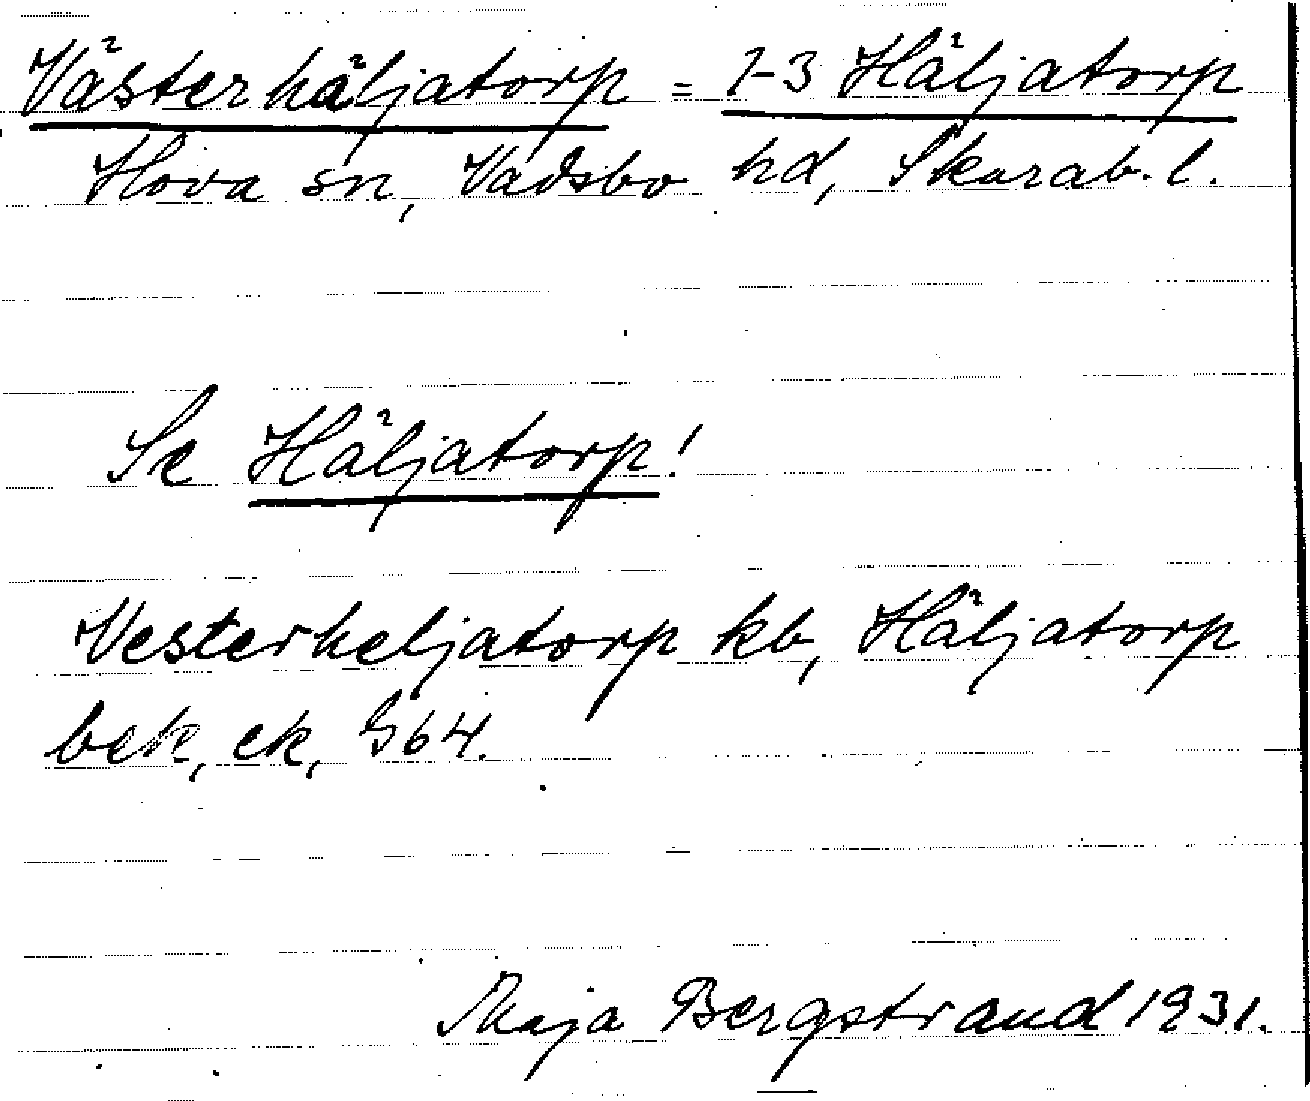 Västerhäljatorp = 1-3 Häljatorp
Hova sn, Vadsbo hd, Skarab. l.
Se Häljatorp!
Vesterheljatorp kb, Häljatorp
bek, ek, G64.
Maja Bergstrand 1931.